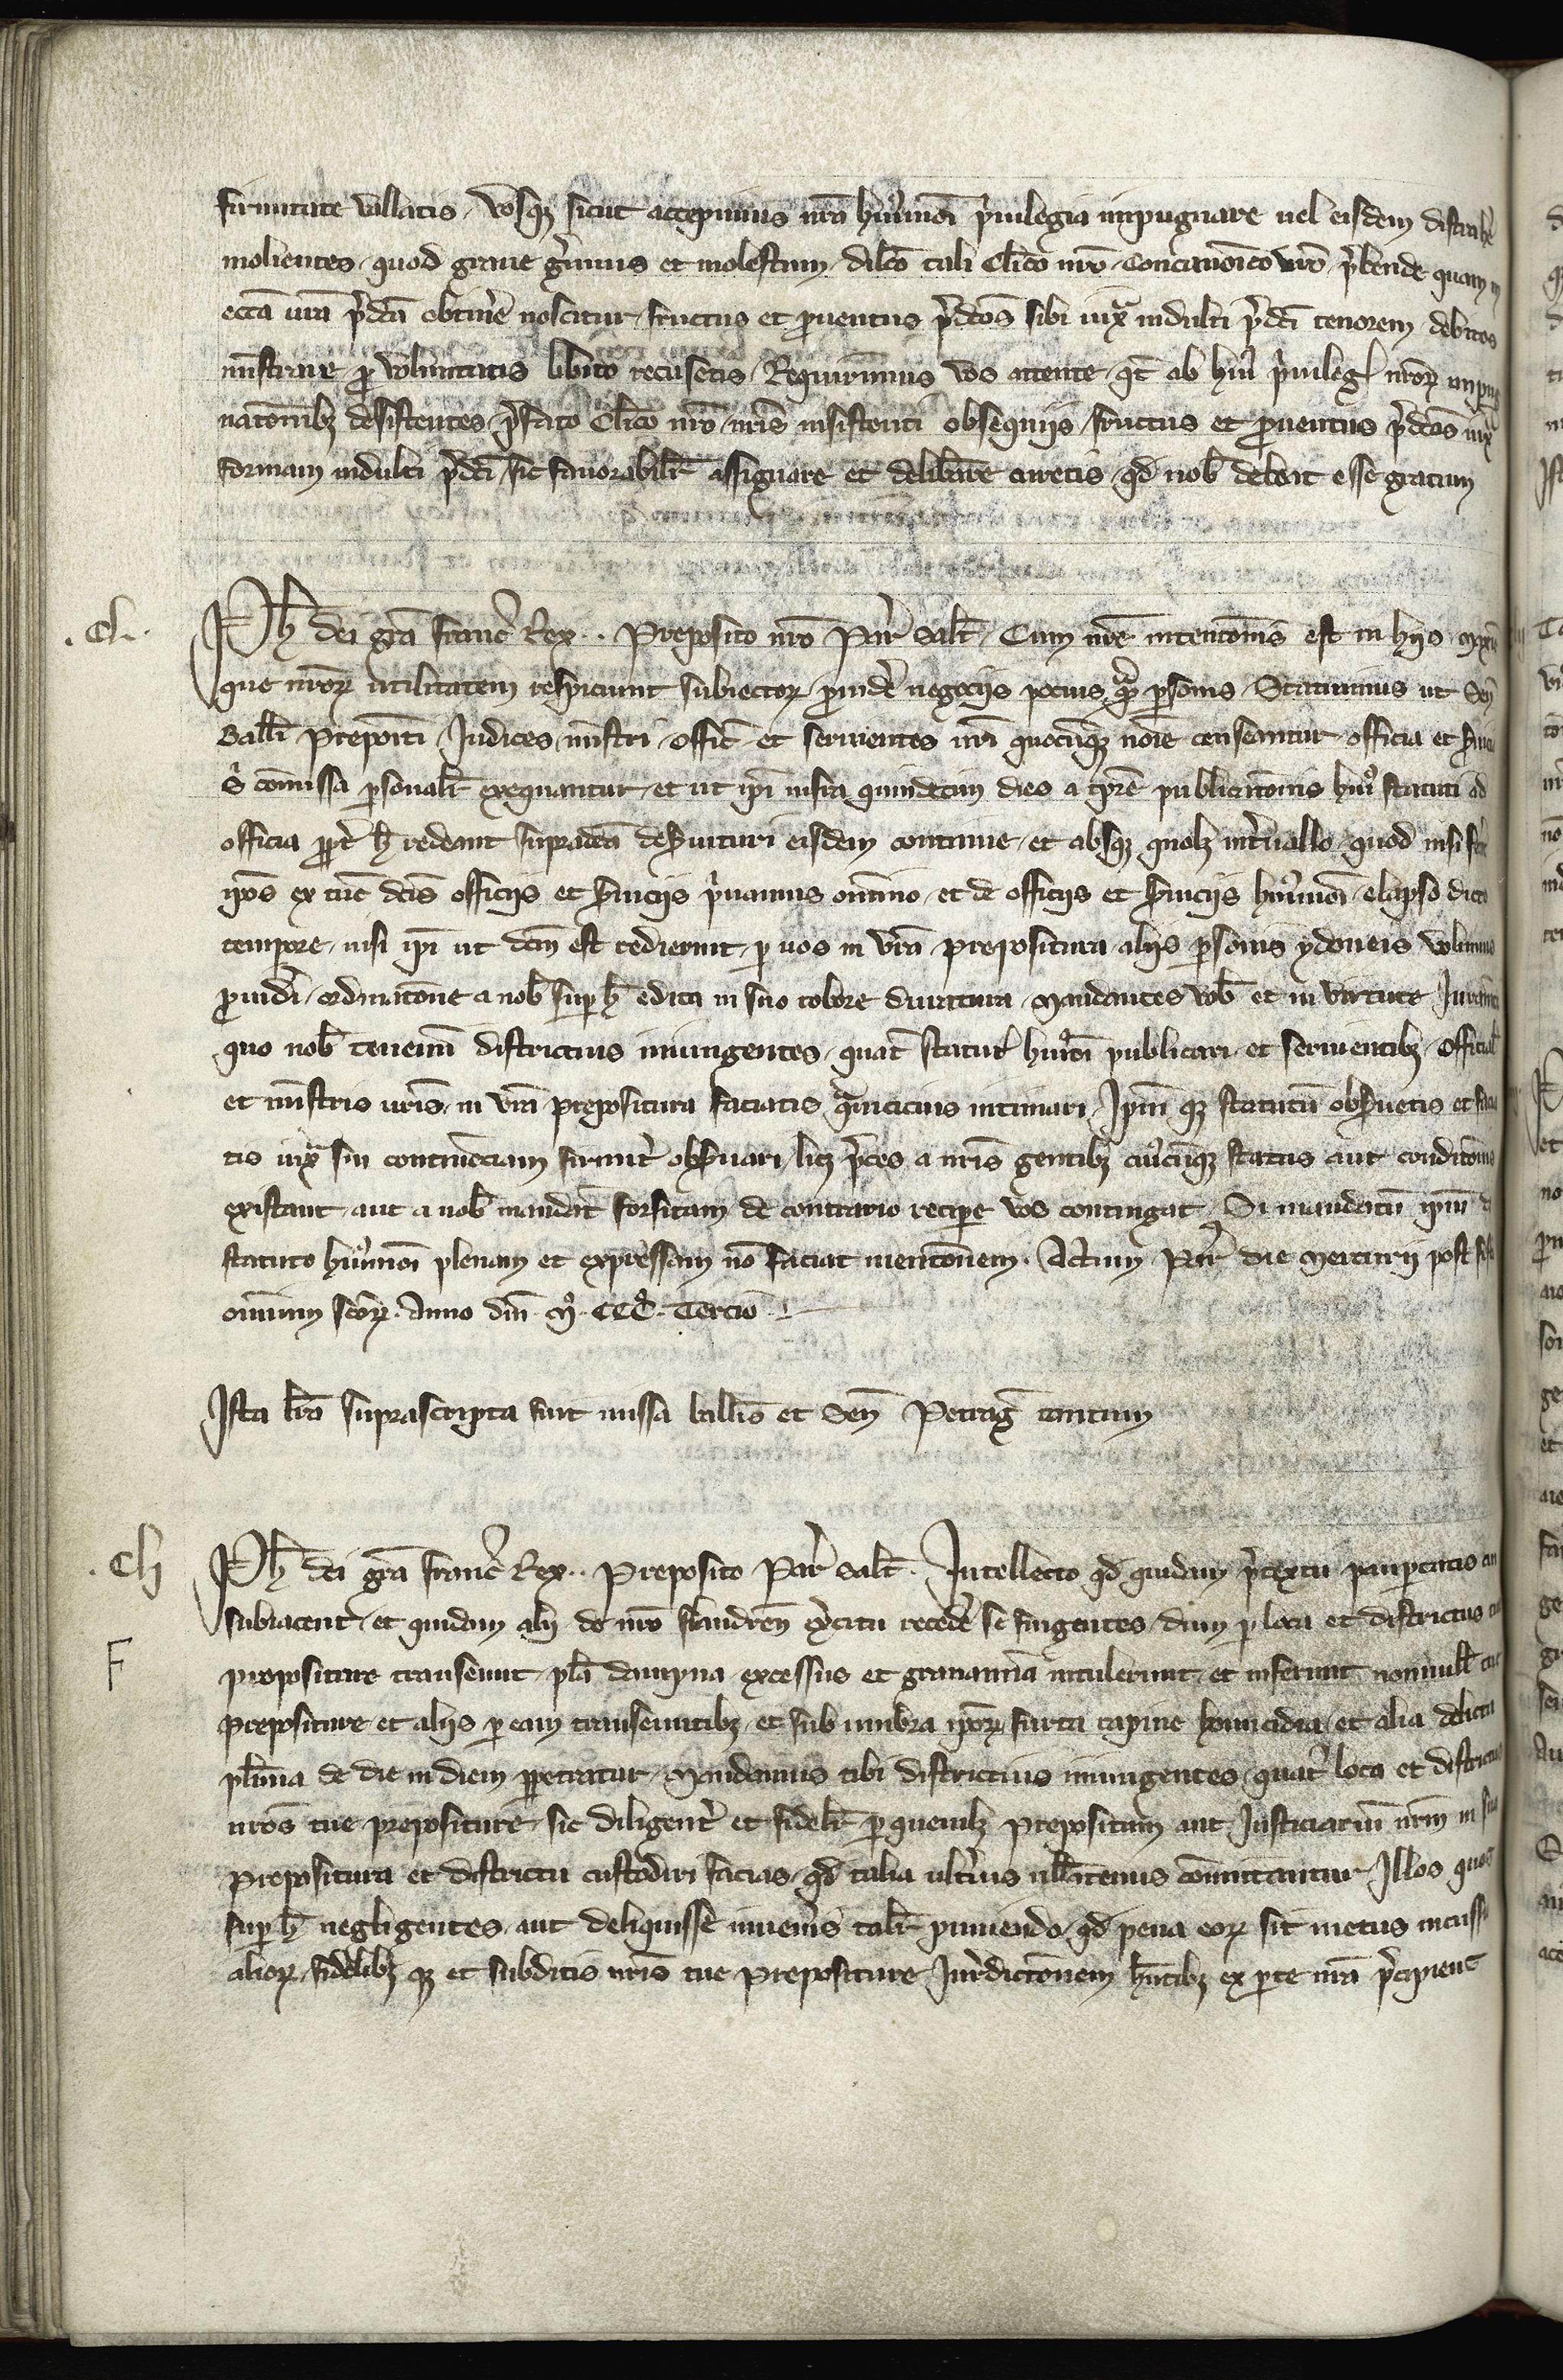 firmitate vallatis, vosq; sicut accepimus nra huiusmodi pruilegia impugnare uel eisdem distrahere
molientes, quod graue gerimus et molestum, dilco tali Clico nro, Concanonico vro, prebende quam in
eccia vra predca obtinere noscitur, fructus et prouentus predcos sibi iuxa indulti predci tenorem debitos
ministrare pro voluntatis libito recusetis, Requirimus vos attente, qt ab huius priuileg nror impug
natonibz desistentes, prefato Clico nro, nris insistenti obsequiis, fructus et prouentus predcos iuxa
formam indulti predci, sic fauorabilit assignare et deliberare curetis, qd nob debeat esse gratum
. Ch .
Ph dei gra franc Rex .. Preposito nro Par salt, Cum nre intentonis est in hiis maxime
que nror utilitatem respiciunt subiector, prouidere negociis pocius qua personis, Statuimus ut Sen
Balli, Prepositi, Iudices, ministri, offic, et seruientes nri quocunqz noie censeantur, officia et seruicia
s comissa personalit exequantur, et ut ipi infra quindecim dies a tpre publicatonis huius statuti ad
officia propt h redeant supradca deseruituri eisdem continue, et absqz quolz interuallo, quod nisi fecerint
ipos ex tuc dcis officiis et seruiciis priuamus omnino, et de officiis et seruiciis huiusmodi, elapso dicto
tempore, nisi ipi ut dcm est redierint, per uos in vra prepositura aliis personis ydoneis volumus
prouideri, ordinatone a nob super h edita in suo robore duratura, Mandantes vob et in virtute Iuramenti
quo nob tenemini districtius iniungentes, quat statut huiusmodi publicari, et seruientibz, official
et ministris nris, in vra prepositura faciatis quamcicius intimari, Ipm qz statutu obseruetis et facia
tis iuxa sui continenciam firmiter obseruari, licz preces a nris gentibz cuiuscunqz status aut conditonis
existant, aut a nob mandat forsitam de contrario recipere vos contingat, Si mandatu ipm de
statuto huiusmodi plenam et expressam no faciat mentonem. Actum Par die Mercurii post festum
omnium scor. Anno dni. Mo. CCCo. Tercio
Ista lra suprascripta fuit missa ballis et Sen Petrag tantum
. Ch
Ph dei gra franc Rex .. Preposito Par salt. Intellecto qd quidam pretextu paupertatis cui
subiacent, et quidam alii de nro flandren exercitu recedere se fingentes, dum per loca et districtus tue
F
prepositure transeunt, pla dampna excessus et grauamia intulerunt, et inferunt nonnull tue
prepositure et aliis per eam transeuntibz, et sub umbra ipor, furta rapine homicidia, et alia delicta
plima de die in diem perpetratur, Mandamus tibi districtius iniungentes, quat loca et districtus
nros tue prepositure, sic diligenter et fidelit per quemlz prepositum aut Iusticiariu nrm in sua
prepositura et districtu custodiri facias, qd talia ulterius ullatenus comittantur, Illos quos
super h negligentes, aut deliquisse inueneris talit puniendo, qd pena eor sit metus incussio
alior, fidelibz qz et subditis nris tue prepositure Iurisdictonem hntibz ex parte nra precipiens